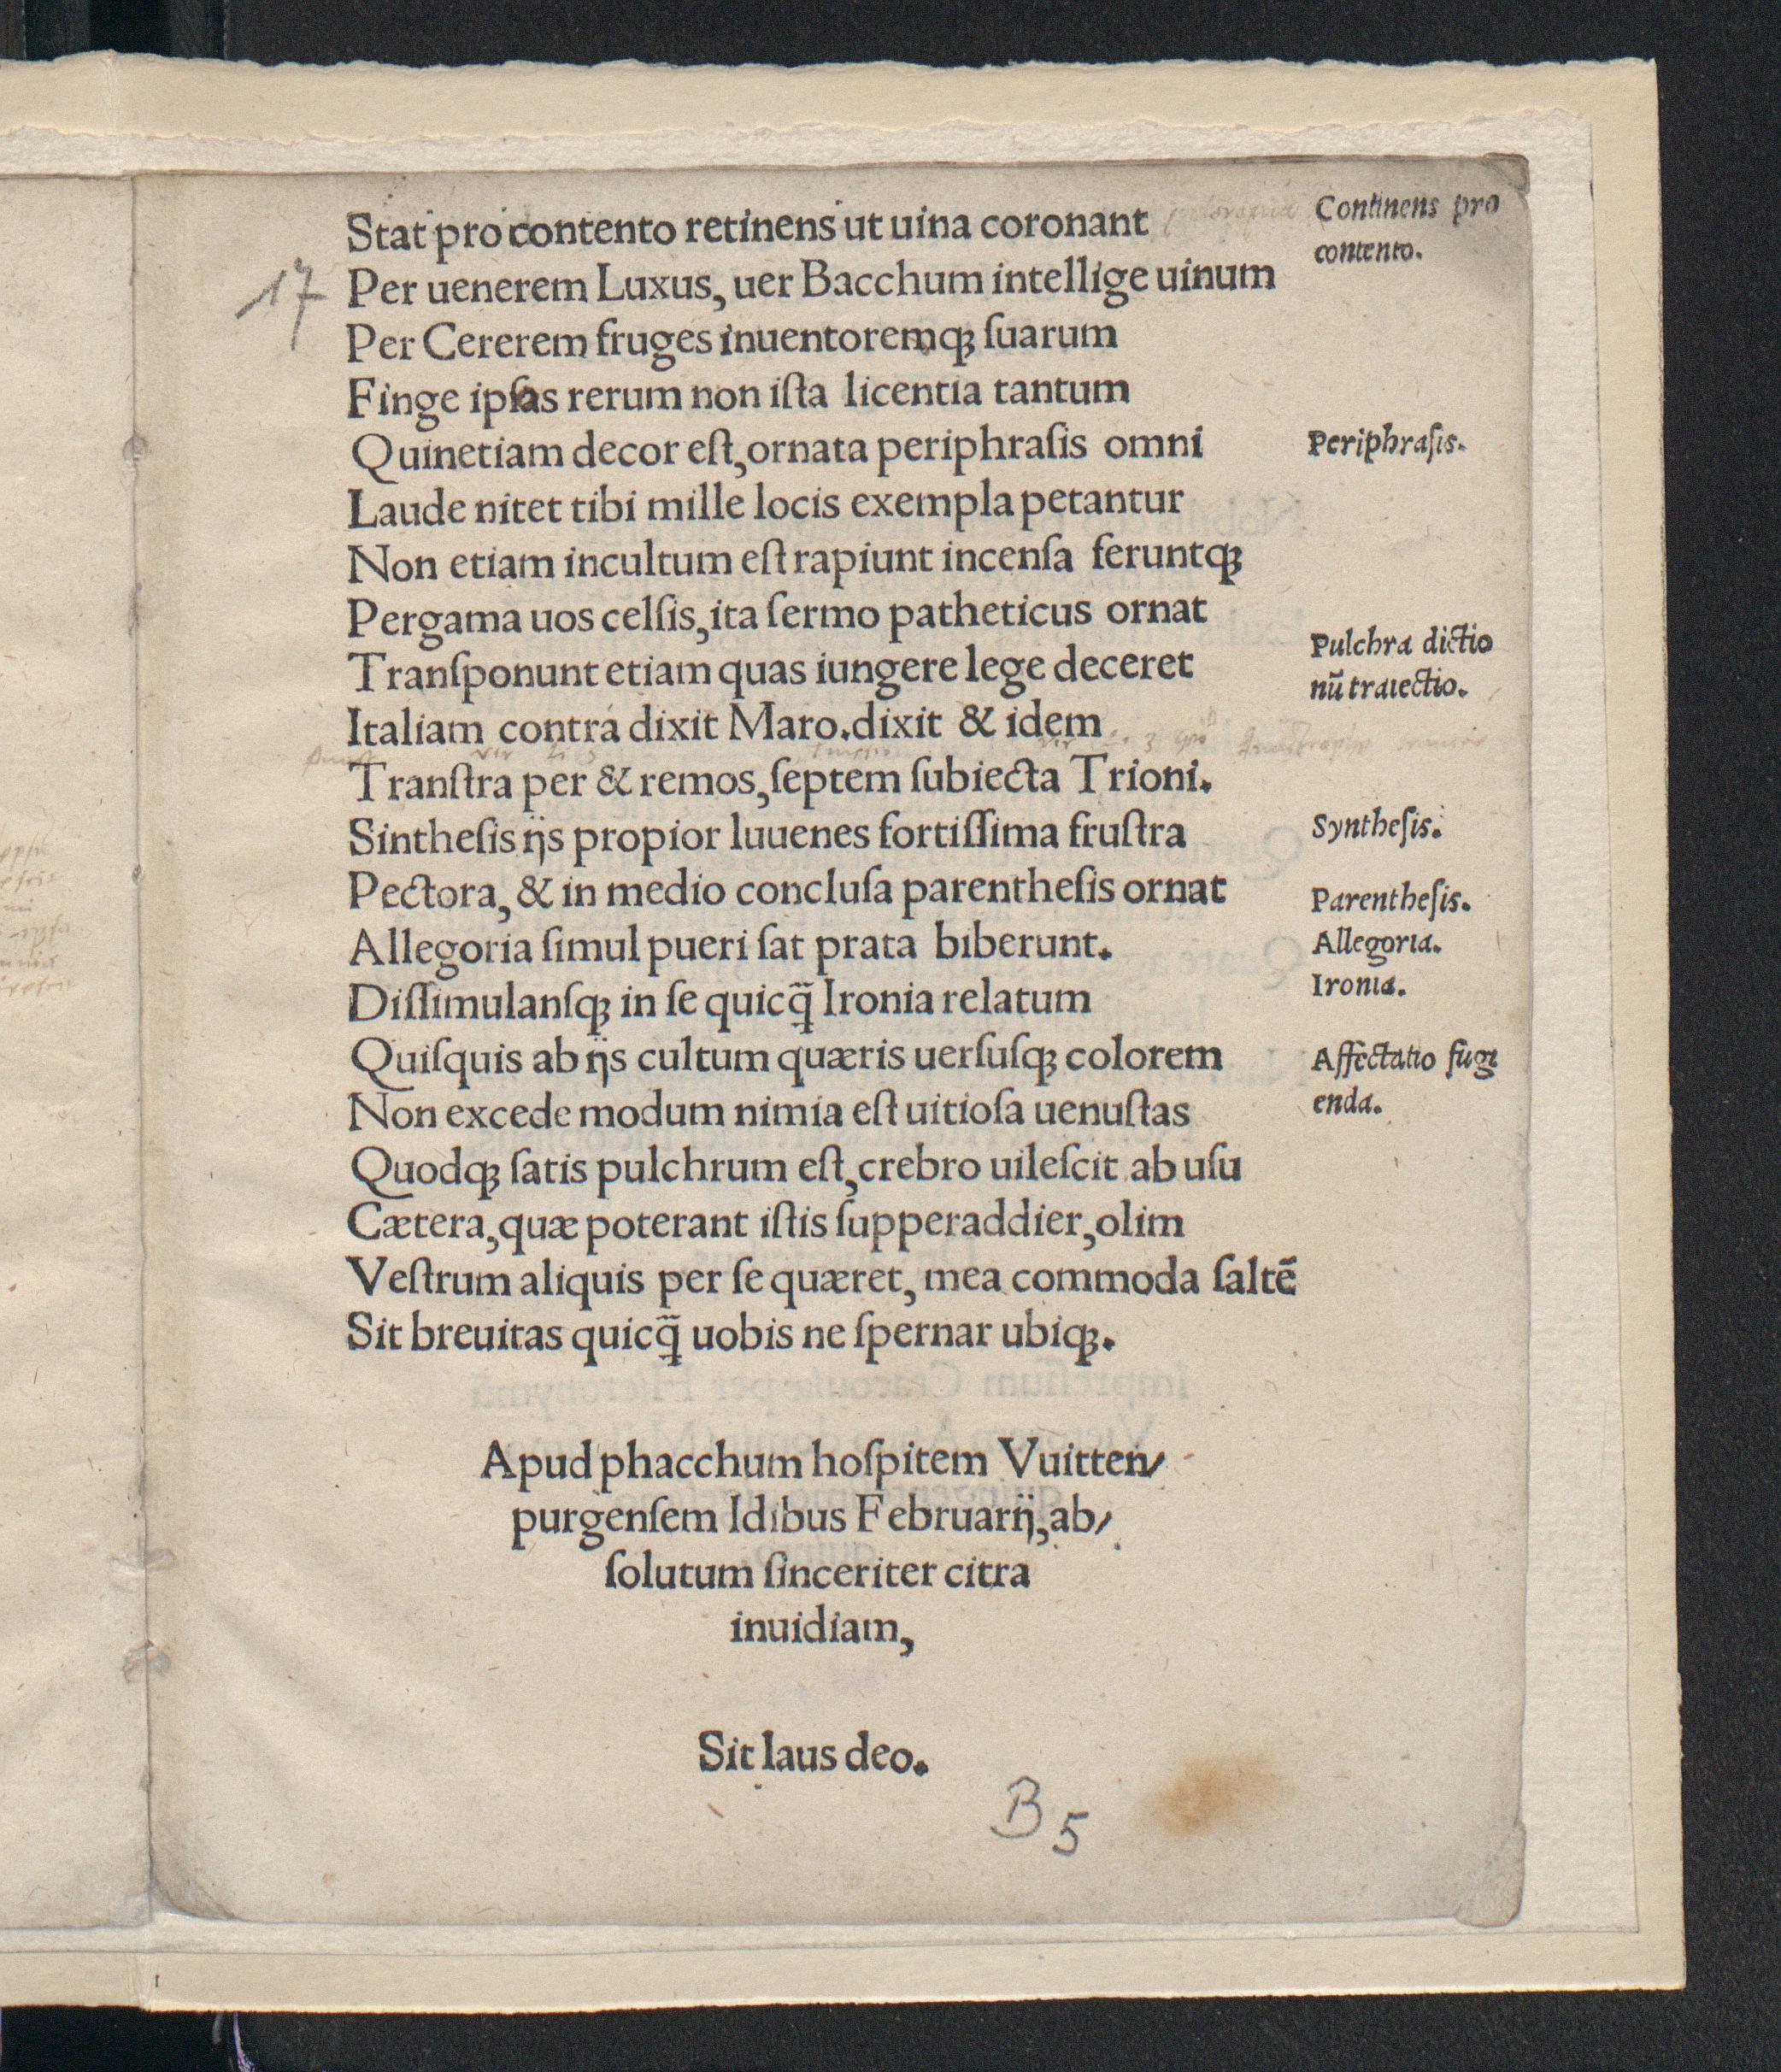 Stat pro contento retinens ut uina coronant
Continens pro
contento.
17
Per uenerem Luxus, uer Bacchum intellige uinum
Per Cererem fruges inuentoremqꝫ ſuarum
Finge ipſas rerum non iſta licentia tantum
Quinetiam decor eſt, ornata periphraſis omni
Periphraſis.
Laude nitet tibi mille locis exempla petantur
Non etiam incultum eſt rapiunt incenſa feruntqꝫ
Pergama uos celſis, ita ſermo patheticus ornat
Pulchra dictio
nū traiectio.
Tranſponunt etiam quas iungere lege deceret
Italiam contrá dixit Maro. dixit & idem
Tranſtra per & remos, ſeptem ſubiecta Trioni.
Sintheſis ijs propior Iuuenes fortiſſima fruſtra
Syntheſis.
Pectora, & in medio concluſa parentheſis ornat
Parentheſis.
Allegoria ſimul pueri ſat prata biberunt.
Allegoria.
Diſſimulanſqꝫ in ſe quicq̃ Ironia relatum
Ironia.
Quiſquis ab ijs cultum quæris uerſuſqꝫ colorem
Affectatio fugi
enda.
Non excede modum nimia eſt uitioſa uenuſtas
Quodqꝫ ſatis pulchrum eſt, crebro uileſcit ab uſu
Cætera, quæ poterant iſtis ſupperaddier, olim
Veſtrum aliquis per ſe quæret, mea commoda ſaltē
Sit breuitas quicq̃ uobis ne ſpernar ubiqꝫ.
Apud phacchum hoſpitem Vuitten/
purgenſem Idibus Februarij, ab/
ſolutum ſinceriter citra
inuidiam,
Sit laus deo.
B5